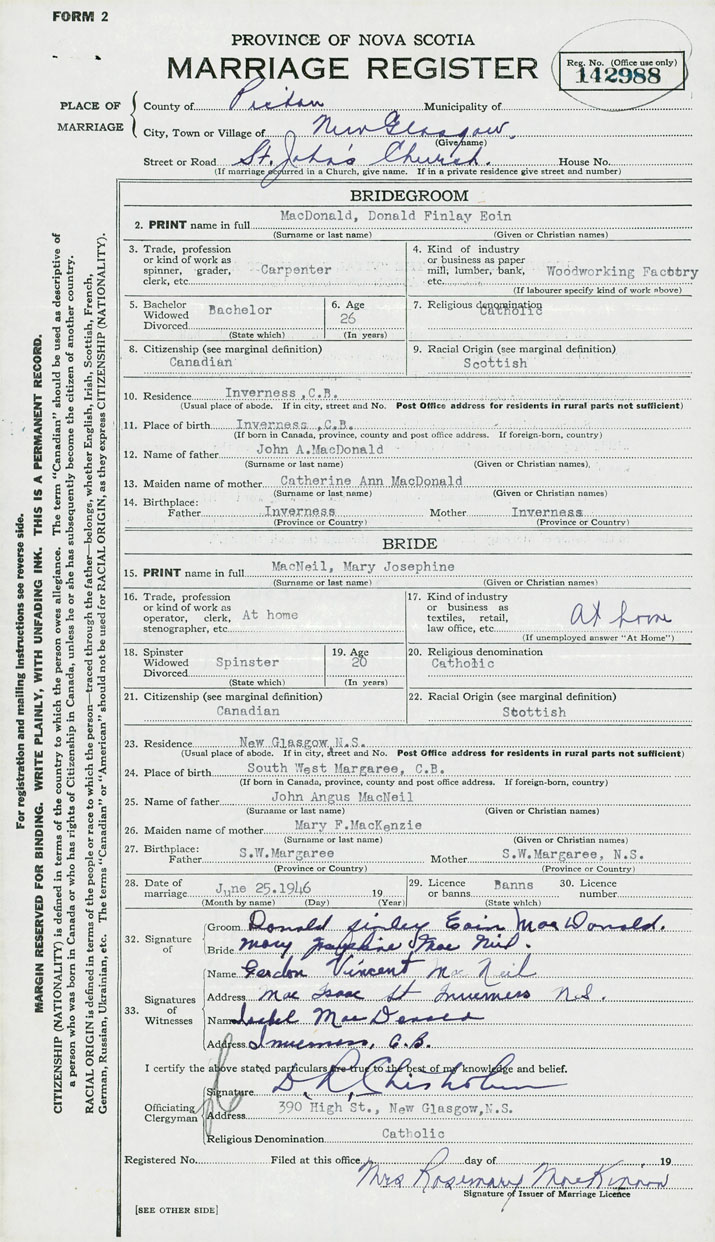 FORM 2
PROVINCE OF NOVA SCOTIA
MARRIAGE REGISTER
Reg. No. (Office use only)
142988
PLACE OF MARRIAGE
County of Pictou Municipality of
City, Town or Village of New Glasgow.
(Give name)
Street or Road St. John's Church. House No.
(If marriage occurred in a Church, give name. If in a private residence give street and number)
BRIDEGROOM
2. PRINT name in full MacDonald, Donald Finlay Eoin
(Surname or last name) (Given or Christian names)
3. Trade, profession or kind of work as spinner, grader, clerk, etc. Carpenter
4. Kind of industry or business as paper mill, lumber, bank, etc. Woodworking Factory
(If labourer specify kind of work above)
5. Bachelor Widowed Divorced Bachelor
(State which)
6. Age 26
(In years)
7. Religious denomination Catholic
8. Citizenship (see marginal definition) Canadian
9. Racial Origin (see marginal definition) Scottish
10. Residence Inverness ,C.B.
(Usual place of abode. If in city, street and No. Post Office address for residents in rural parts not sufficient)
11. Place of birth Inverness ,C.B.
(If born in Canada, province, county and post office address. If foreign-born, country)
12. Name of father John A.MacDonald
(Surname or last name) (Given or Christian names)
13. Maiden name of mother Catherine Ann MacDonald
(Surname or last name) (Given or Christian names)
14. Birthplace: Father Inverness Mother Inverness
(Province or Country) (Province or Country)
BRIDE
15. PRINT name in full MacNeil, Mary Josephine
(Surname or last name) (Given or Christian names)
16. Trade, profession or kind of work as operator, clerk, stenographer, etc. At home
17. Kind of industry or business as textiles, retail, law office, etc. At home
(If unemployed answer "At Home")
18. Spinster Widowed Divorced Spinster
(State which)
19. Age 20
(In years)
20. Religious denomination Catholic
21. Citizenship (see marginal definition) Canadian
22. Racial Origin (see marginal definition) Scottish
23. Residence New Glasgow,N.S.
(Usual place of abode. If in city, street and No. Post Office address for residents in rural parts not sufficient)
24. Place of birth South West Margaree, C.B.
(If born in Canada, province, county and post office address. If foreign-born, country)
25. Name of father John Angus MacNeil
(Surname or last name) (Given or Christian names)
26. Maiden name of mother Mary F.MacKenzie
(Surname or last name) (Given or Christian names)
27. Birthplace: Father S.W.Margaree Mother S.W.Margaree, N.S.
(Province or Country) (Province or Country)
28. Date of marriage June 25.1946 19
(Month by name) (Day) (Year)
29. Licence or banns Banns
(State which)
30. Licence number
32. Signature of
Groom Donald Finley Eoin MacDonald.
Bride Mary Josephine MacNeil.
33. Signatures of Witnesses
Name Gordon Vincent MacNeil
Address Mac Isaac St Inverness N.S.
Name Isabel Mac
Address Inverness, C.B.
I certify the above stated particulars are true to the best of my knowledge and belief.
Officiating Clergyman
Signature D. R. Chisholm
Address 390 High St., New Glasgow,N.S.
Religious Denomination Catholic
Registered No. Filed at this office day of 19
Mrs Rosemary MacKinnon
Signature of Issuer of Marriage Licence
[SEE OTHER SIDE]
For registration and mailing instructions see reverse side.
MARGIN RESERVED FOR BINDING. WRITE PLAINLY, WITH UNFADING INK. THIS IS A PERMANENT RECORD.
CITIZENSHIP (NATIONALITY) is defined in terms of the country to which the person owes allegiance. The term "Canadian" should be used as descriptive of
a person who was born in Canada or who has rights of Citizenship in Canada, unless he or she has subsequently become the citizen of another country.
RACIAL ORIGIN is defined in terms of the people or race to which the person—traced through the father—belongs, whether English, Irish, Scottish, French,
German, Russian, Ukrainian, etc. The terms "Canadian" or "American" should not be used for RACIAL ORIGIN, as they express CITIZENSHIP (NATIONALITY).